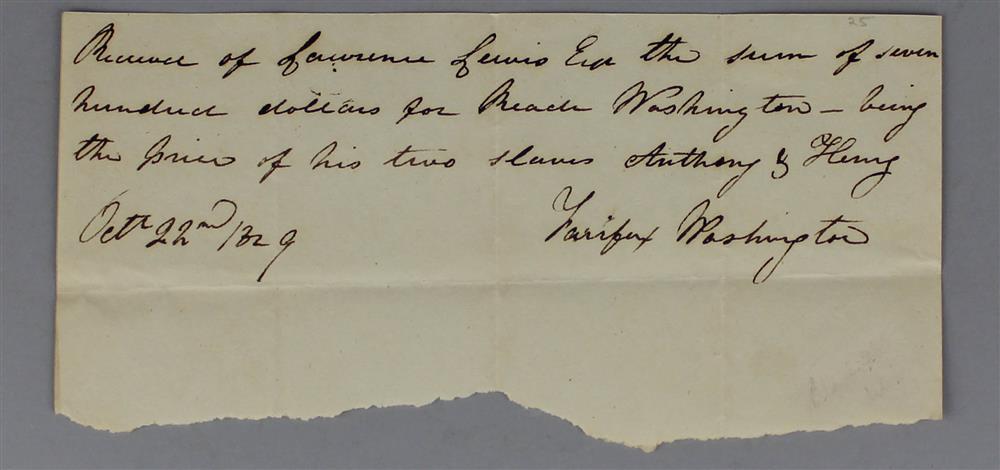 25
Received of Lawrence Lewis Esq the sum of seven
hundred dollars for Reade Washington – being
the price of his two slaves Anthony & Henry
Octr 22nd 1829
Fairfax Washington